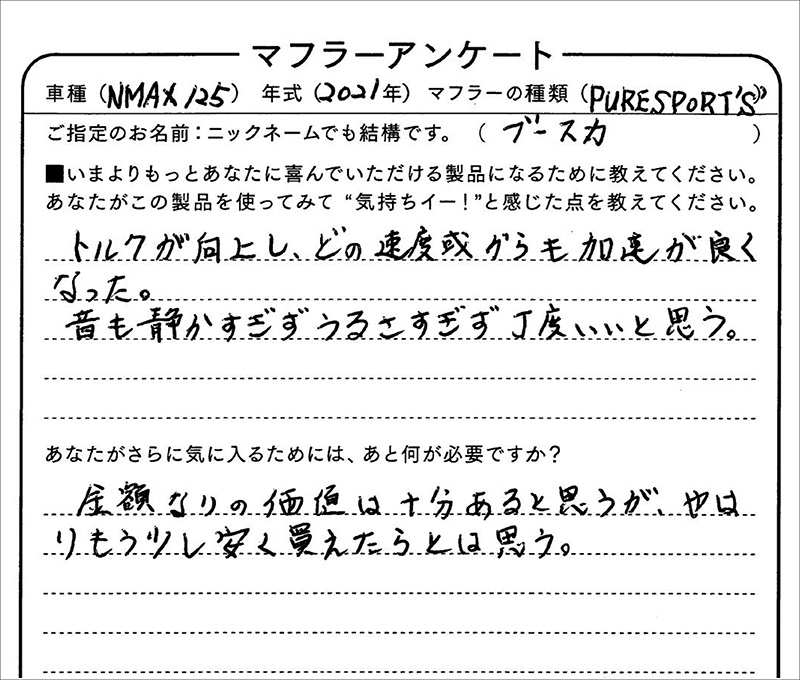 マフラーアンケート
車種（NMAX125） 年式（2021年） マフラーの種類（PURESPORT'S"）
ご指定のお名前：ニックネームでも結構です。（ ブースカ ）
■いまよりもっとあなたに喜んでいただける製品になるために教えてください。
あなたがこの製品を使ってみて“気持ちイー！”と感じた点を教えてください。
トルクが向上し、どの速度或からも加速が良く
なった。
音も静かすぎずうるさすぎず丁度いいと思う。
あなたがさらに気に入るためには、あと何が必要ですか？
金額なりの価値は十分あると思うが、やは
りもう少し安く買えたらとは思う。